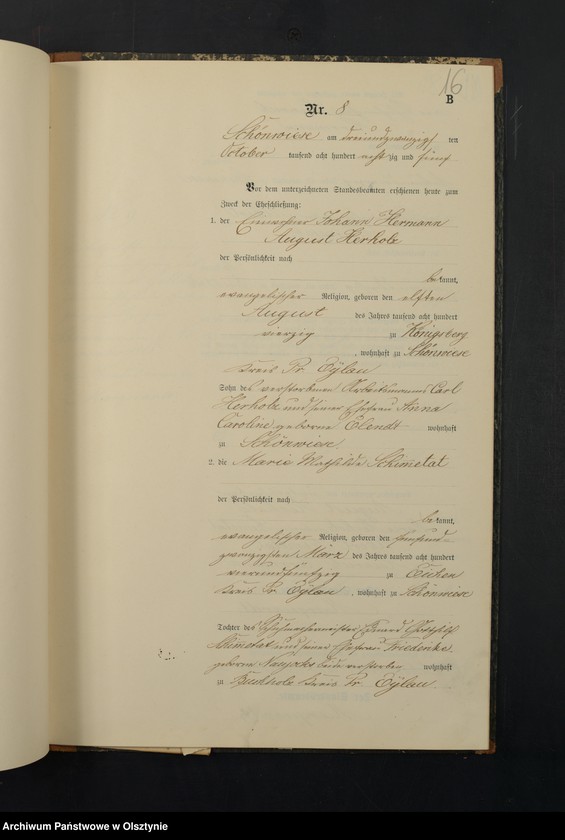 16
B
Nr. 8
Schönwiese am dreiundzwanzigsten
October tausend acht hundert achtzig und fünf
Vor dem unterzeichneten Standesbeamten erschienen heute zum
Zweck der Eheschließung:
1. der Einwohner Johann Hermann
August Herholz
der Persönlichkeit nach
bekannt,
evangelischer Religion, geboren den elften
August des Jahres tausend acht hundert
vierzig zu Königsberg
, wohnhaft zu Schönwiese
Kreis Pr. Eylau
Sohn des verstorbenen Arbeitsmanns Carl
Herholz und seiner Ehefrau Anna
Caroline geborne Elendt wohnhaft
zu Schönwiese
2. die Marie Mathilde Schimetat
der Persönlichkeit nach
bekannt,
evangelischer Religion, geboren den fünfund-
zwanzigsten März des Jahres tausend acht hundert
vierundfünfzig zu Eichen
Kreis Pr. Eylau, wohnhaft zu Schönwiese
Tochter des Schuhmachermeister Eduard Gottfilf
Schimetat und seiner Ehefrau Friederike
geborne beide verstorben wohnhaft
zu Buchholz Kreis Pr. Eylau
Archiwum Państwowe w Olsztynie